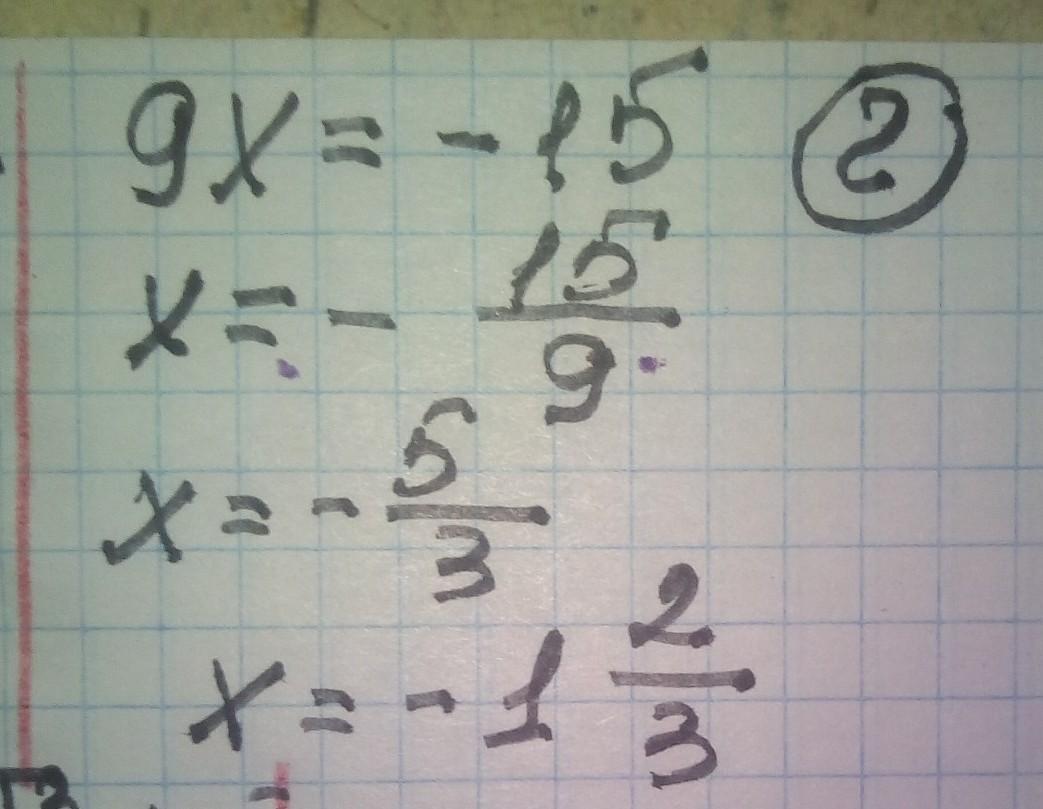 9x = -15 ②
x = - 15/9
x = - 5/3
x = - 1 2/3